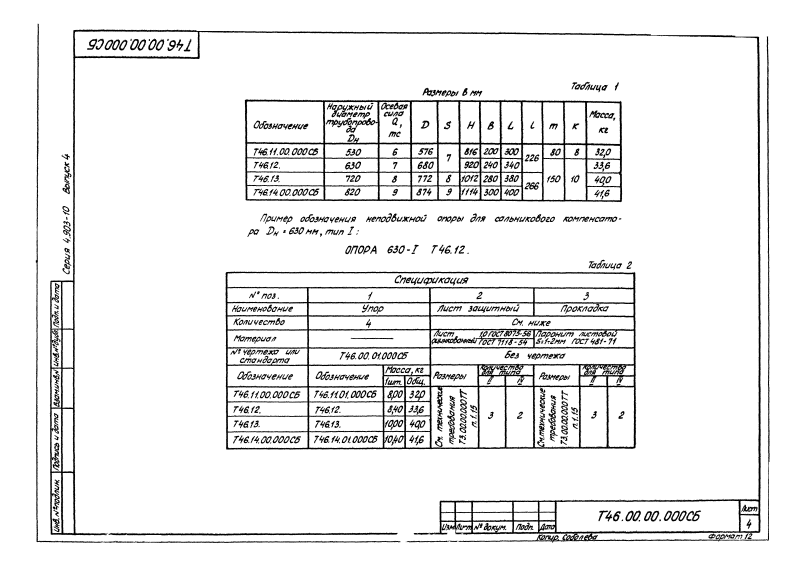 Т46.00.00.000СБ
Серия 4.903-10 Выпуск 4
Размеры в мм
Таблица 1
Обозначение | Наружный диаметр трубопровода Dн | Осевая сила Q, тс | D | S | H | B | L | l | m | к | Масса, кг
Т46.11.00.000СБ | 530 | 6 | 576 | 7 | 816 | 200 | 300 | 226 | 80 | 8 | 32,0
Т46.12. | 630 | 7 | 680 | 920 | 240 | 340 | 150 | 10 | 33,6
Т46.13. | 720 | 8 | 772 | 8 | 1012 | 280 | 380 | 266 | 40,0
Т46.14.00.000СБ | 820 | 9 | 874 | 9 | 1114 | 300 | 400 | 41,6
Пример обозначения неподвижной опоры для сальникового компенсато-
ра Dн = 630 мм, тип I :
ОПОРА 630-I Т46.12.
Таблица 2
Спецификация
N° поз. | 1 | 2 | 3
Наименование | Упор | Лист защитный | Прокладка
Количество | 4 | См. ниже
Материал | — | Лист оцинкованный 1,0 ГОСТ 8075-56 ГОСТ 7118-54 | Паронит листовой S=1-2мм ГОСТ 481-71
N° чертежа или стандарта | Т46.00.01.000СБ | Без чертежа
Обозначение | Обозначение | Масса, кг | Размеры | Количество для типа | Размеры | Количество для типа
1шт. | Общ. | II | IV | II | IV
Т46.11.00.000СБ | Т46.11.01.000СБ | 8,00 | 32,0 | См. технические требования Т3.00.00.000ТТ п.1.15 | 3 | 2 | См. технические требования Т3.00.00.000ТТ п.1.15 | 3 | 2
Т46.12. | Т46.12. | 8,40 | 33,6
Т46.13. | Т46.13. | 10,00 | 40,0
Т46.14.00.000СБ | Т46.14.01.000СБ | 10,40 | 41,6
Инв.N°подлин. | Подпись и дата | Взам.инв.N | Инв.N°дубл. | Подп. и дата
Изм | Лист | N° докум. | Подп. | Дата
Т46.00.00.000СБ
Лист
4
Копир. Соболева
Формат 12